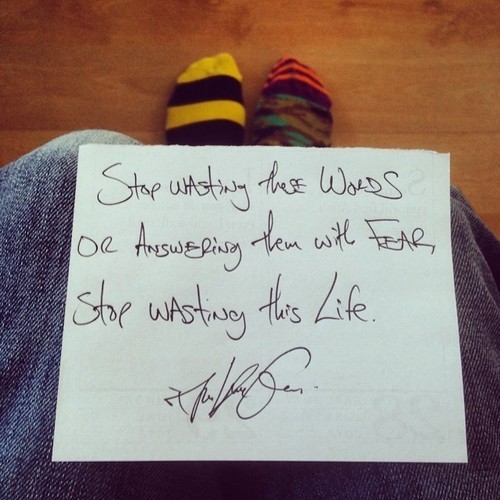 Stop wasting these Words
or Answering them with Fear,
Stop wasting this Life.